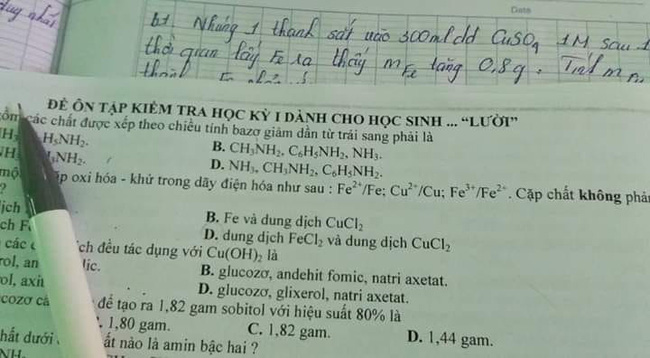 Date
dụng phải
b1. Nhúng 1 thanh sắt vào 300ml dd CuSO4 1M sau 1
thời gian lấy Fe ra thấy mFe tăng 0,8g. Tính m
thanh
ĐỀ ÔN TẬP KIỂM TRA HỌC KỲ I DÀNH CHO HỌC SINH ... “LƯỜI”
ồm các chất được xếp theo chiều tính bazơ giảm dần từ trái sang phải là
H5NH2.
B. CH3NH2, C6H5NH2, NH3.
NH2.
D. NH3, CH3NH2, C6H5NH2.
một ặp oxi hóa - khử trong dãy điện hóa như sau : Fe2+/Fe; Cu2+/Cu; Fe3+/Fe2+. Cặp chất không phản
?
ịch
B. Fe và dung dịch CuCl2
ch F
D. dung dịch FeCl2 và dung dịch CuCl2
các ch đều tác dụng với Cu(OH)2 là
rol, an lic.
B. glucozơ, andehit fomic, natri axetat.
ol, axit
D. glucozơ, glixerol, natri axetat.
cozơ cầ để tạo ra 1,82 gam sobitol với hiệu suất 80% là
. 1,80 gam.
C. 1,82 gam.
D. 1,44 gam.
hất dưới ất nào là amin bậc hai ?
NH